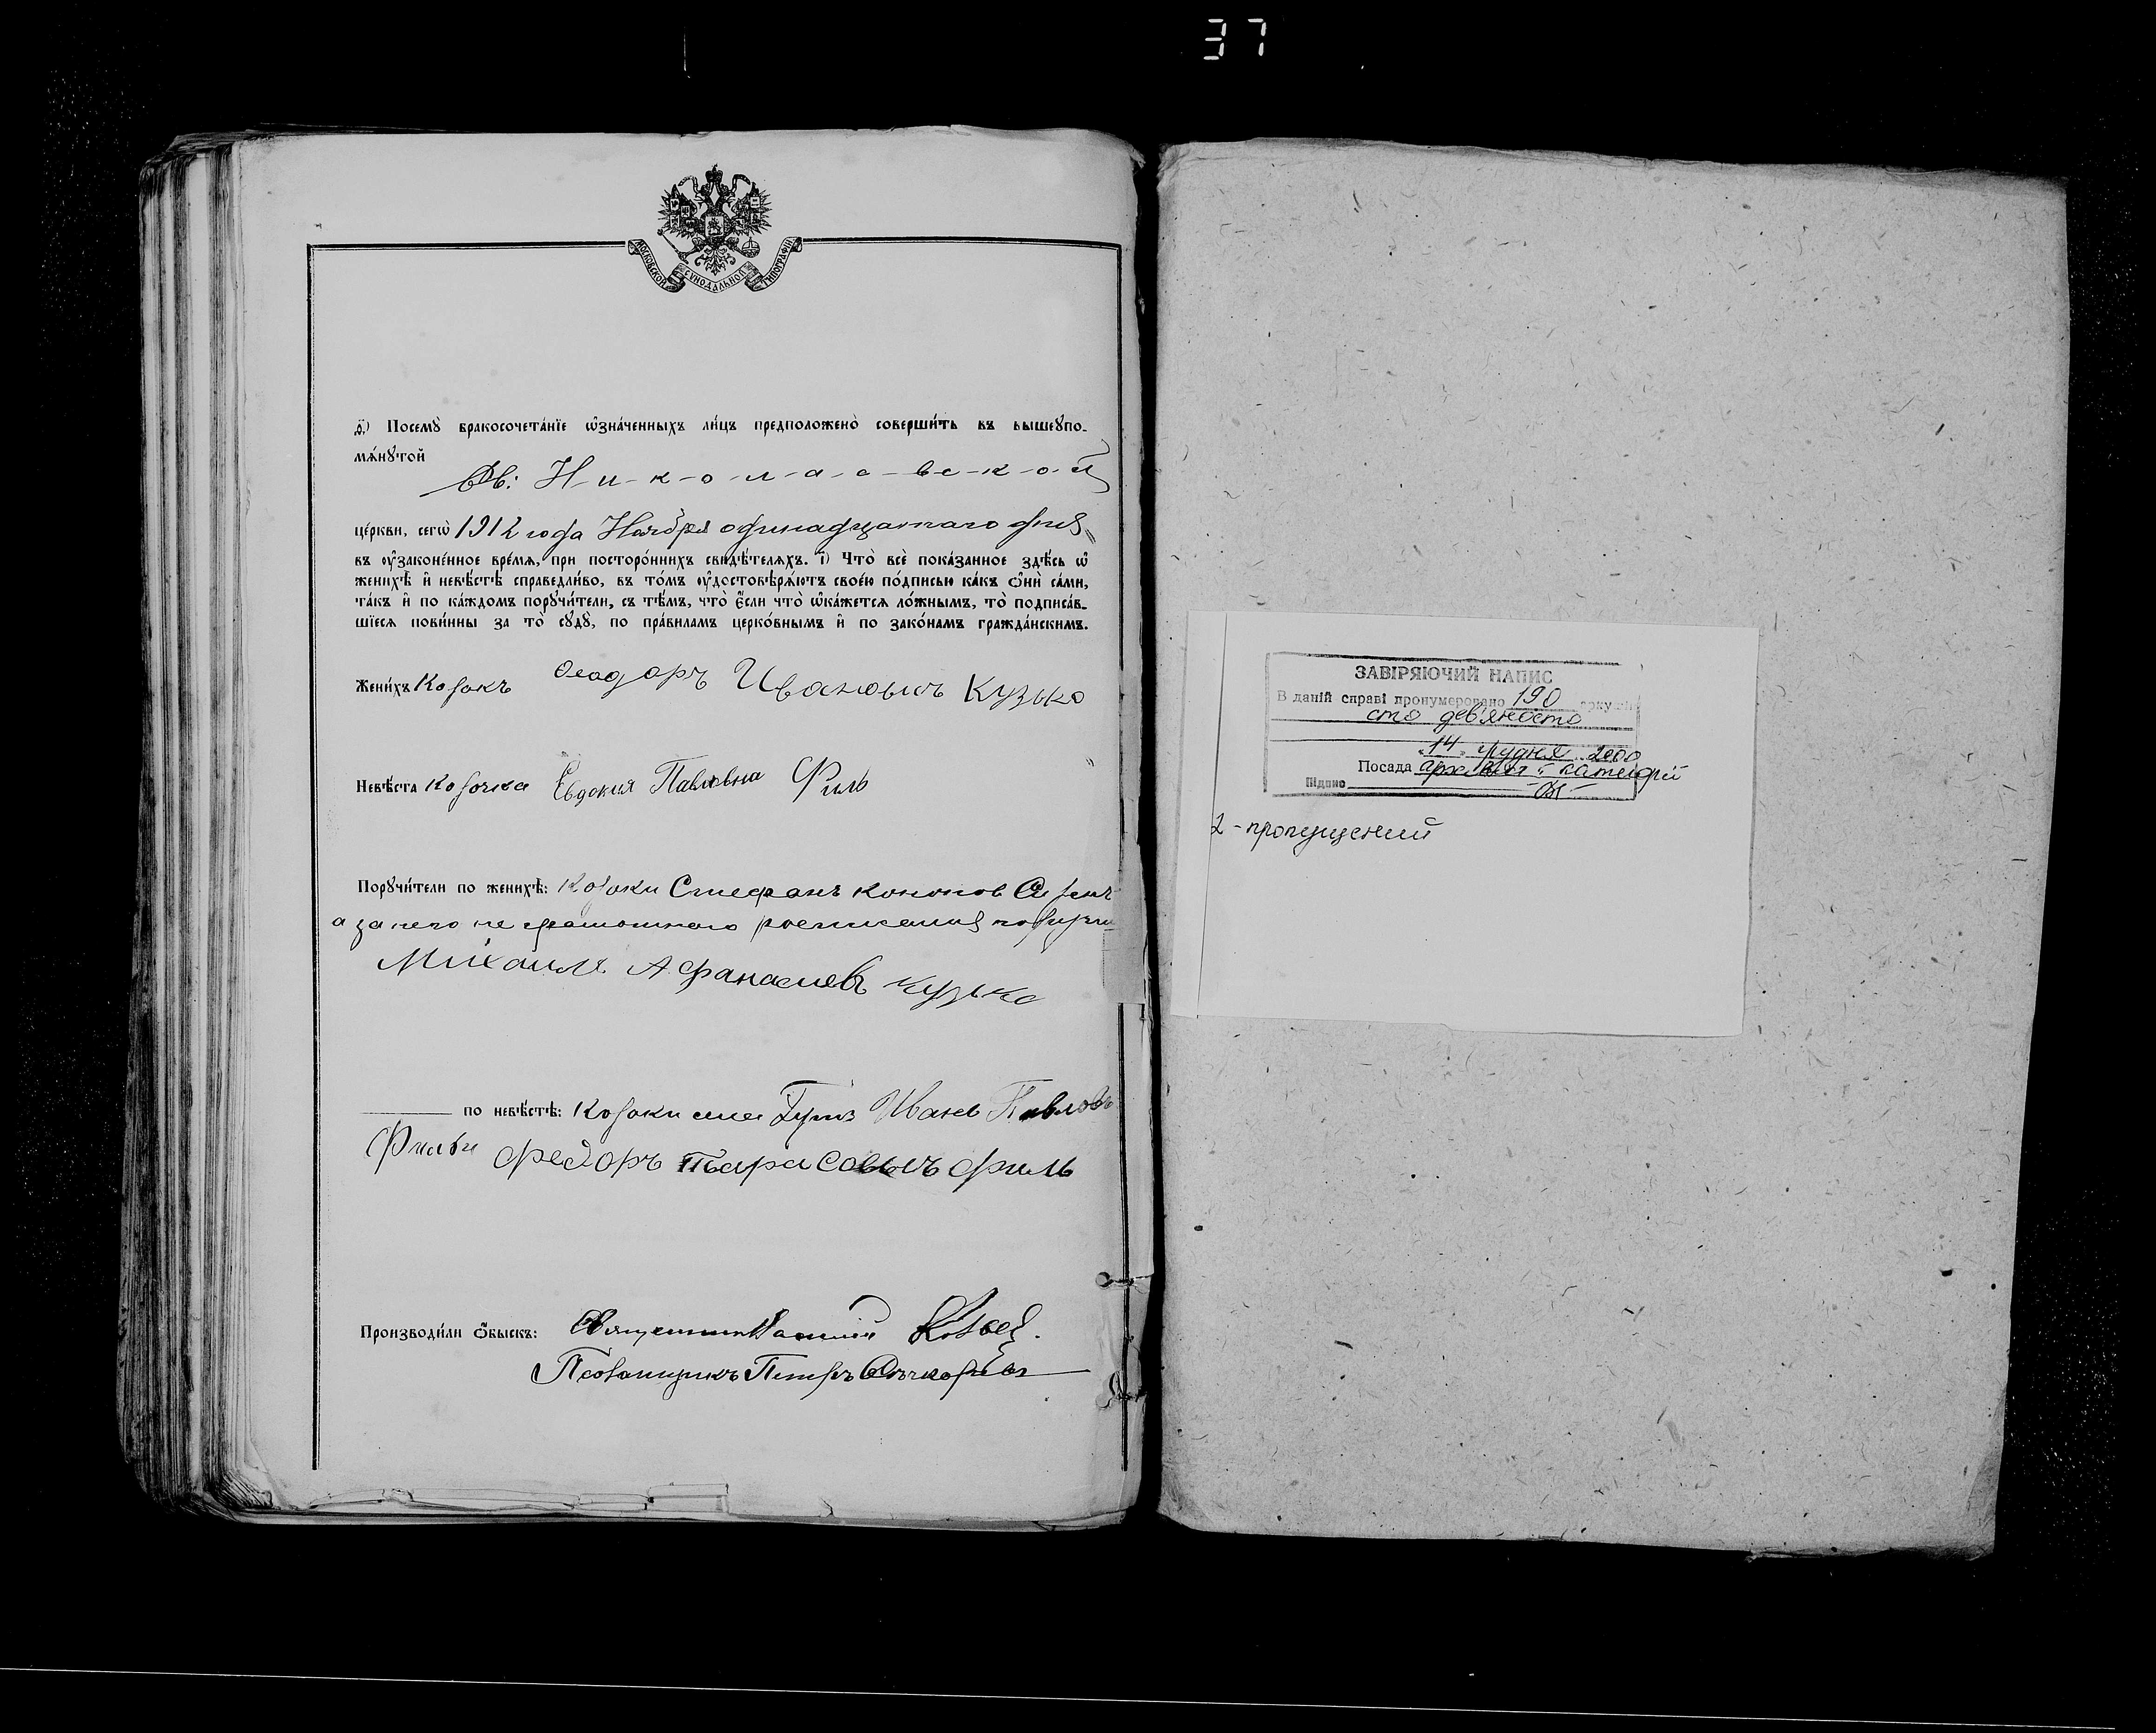 37
МОСКОВСКОЙ СѴНОДАЛЬНОЙ ТИПОГРАФІИ
д҃) Посемꙋ̀ бракосочета́нїе ѡ҆зна́ченныхъ ли́цъ предположено̀ соверши́ть въ вышеꙋпо-
мѧ́нꙋтой
Св: Н-и-к-о-л-а-е-вс-к-о-й
це́ркви, сегѡ̀ 1912 года Ноября одинадцатаго дня
въ ᲂу҆законе́нное вре́мѧ, при посторо́ннихъ свидѣ́телѧхъ. і҃) Что̀ всѐ пока́занное здѣ́сь ѡ҆
женихѣ̀ и҆ невѣ́стѣ справедли́во, въ то́мъ ᲂу҆достовѣрѧ́ютъ свое́ю по́дписью ка́къ ѻ҆нѝ са́ми,
та́къ и҆ по ка́ждомъ порꙋчи́тели, съ тѣ́мъ, что̀ є҆́сли что̀ ѡ҆ка́жетсѧ ло́жнымъ, то̀ подписа́в-
шїесѧ пови́нны за то̀ сꙋдꙋ̀, по пра́виламъ церко́внымъ и҆ по зако́намъ гражда́нскимъ.
Жени́хъ Козакъ Ѳеодоръ Ивановичъ Кузько
Невѣ́ста Козачка Евдокия Павловна Филь
Порꙋчи́тели по женихѣ̀: Козаки Стефанъ Кононов
а за него не грамотного росписался
Михаилъ Афанасиевъ Кузько
по невѣ́стѣ: Козаки Иванъ Павловъ
Филь и Федоръ Тарасовичъ Филь
Производи́ли ѻ҆́быскъ: Священник
Псаломщикъ Петръ
ЗАВІРЯЮЧИЙ НАПИС
В даній справі пронумеровано 190 аркушів
сто дев'яносто
"14" грудня 2000
Посада архівіст II категорії
Підпис
2 - пропущений